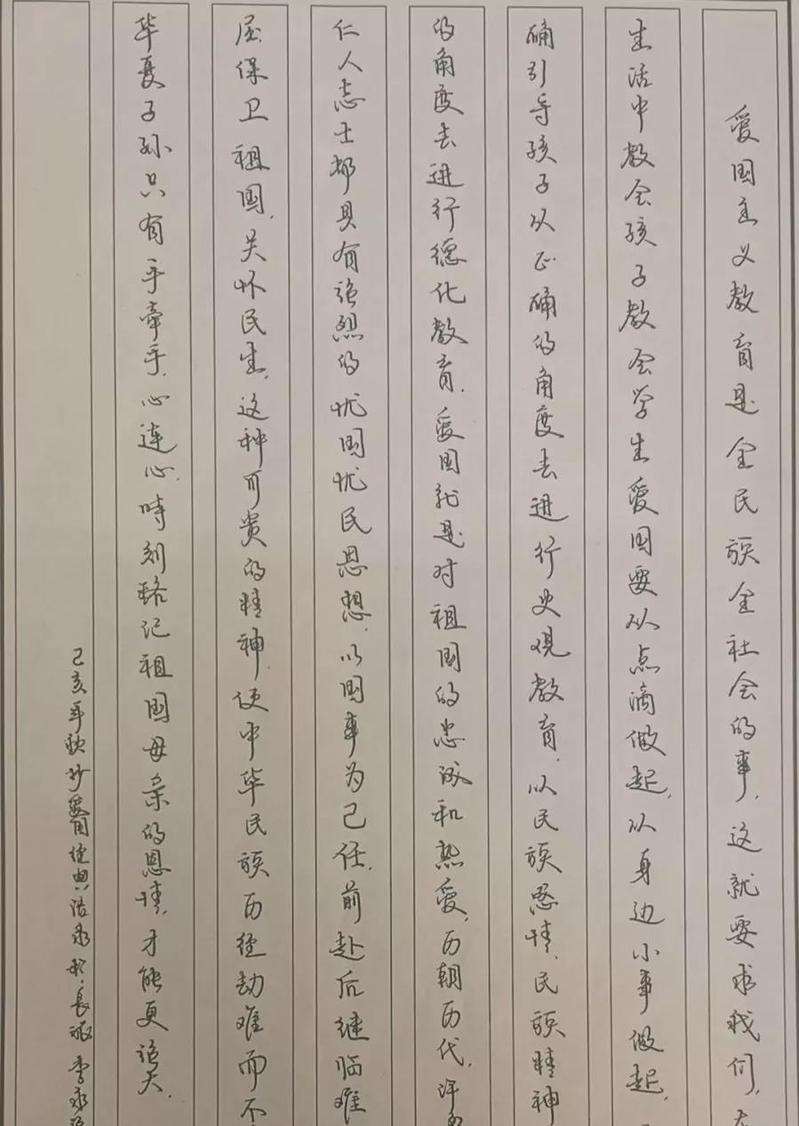 爱国主义教育是全民族全社会的事，这就要求我们，在
生活中教会孩子教会学生爱国要从点滴做起，从身边小事做起，
确引导孩子从正确的角度去进行史观教育，以民族恩情、民族精神
的角度去进行德化教育，爱国就是对祖国的忠诚和热爱，历朝历代，许多
仁人志士都具有强烈的忧国忧民思想，以国事为己任，前赴后继临难
屈保卫祖国，关怀民生，这种可贵的精神，使中华民族历经劫难而不
华夏子孙只有手牵手，心连心，時刻铭记祖国母亲的恩情，才能更强大，
己亥年秋抄爱国经典语录於長